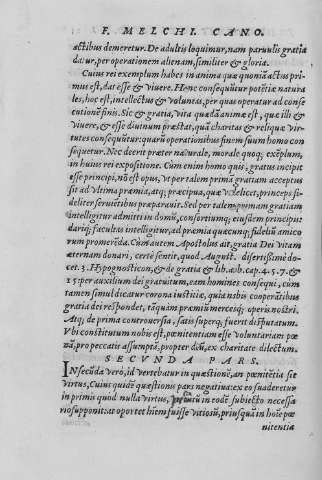 F. MELCHI. CANO.
actibus demeretur. De adultis loquimur, nam paruulis gratia
datur, per operationem alienam, similiter & gloria.
Cuius rei exemplum habes in anima quæ quoniã actus pri
mus est, dat esse & viuere. Hãc consequũtur potẽtiæ natura
les, hoc est, intellectus & voluntas, per quas operatur ad conse
cutionẽ finis. Sic & gratia, vita quædã animæ est, quæ illi &
viuere, & esse diuinum præstat, quã charitas & reliquæ vir
tutes consequũtur: quarũ operationibus finem suum homo con
sequetur. Nec deerit præter naturale, morale quoq; exẽplum,
in huius rei expositione. Cum enim homo quis, gratus incipit
esse principi, nõ est opus, vt per talem primã gratiam acceptus
sit ad vltima præmia, atq; præcipua, quæ videlicet, princeps fi-
deliter seruiẽtibus præparauit. Sed per talem primam gratiam
intelligitur admitti in domũ, consortiumq; eiusdem principis:
dariq; facultas intelligitur, ad præmia quæcunq; fideliũ amico
rum promerẽda. Cum autem Apostolus ait, gratia Dei vitam
æternam donari, certè sentit, quod August. disertissimè do-
cet. 3. Hypognosticon, & de gratia & lib. arb. cap. 4. 5. 7. &
15: per auxilium dei gratuitum, eam homines consequi, cum
tamen simul dicatur corona iustitiæ, quia nobis cooperãtibus
gratia dei respondet, tãquam præmiũ merces q; operis nostri.
Atq; de prima controuersia, satis superq; fuerit disputatum.
Vbi constitutum nobis est, pœnitentiam esse voluntariam pœ
nã, pro peccatis assumptã, propter deũ, ex charitate dilectum.
SECVNDA PARS.
In secũda verò, id vertebatur in quæstionẽ, an pœnitẽtia sit
virtus, Cuius quidẽ quæstionis pars negatiua: ex eo suaderetur
in primis quod nulla virtus, in eodẽ subiecto necessa
riò supponit at oportet hiem fuisse vitiosũ, priusquã in hoĩe pœ
nitentia